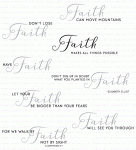 Faith
CAN MOVE MOUNTAINS
DON'T LOSE
Faith
Faith
MAKES ALL THINGS POSSIBLE
HAVE
Faith
DON'T DIG UP IN DOUBT
WHAT YOU PLANTED IN
Faith
ELISABETH ELLIOT
LET YOUR
Faith
BE BIGGER THAN YOUR FEARS
Faith
WILL SEE YOU THROUGH
FOR WE WALK BY
Faith
NOT BY SIGHT